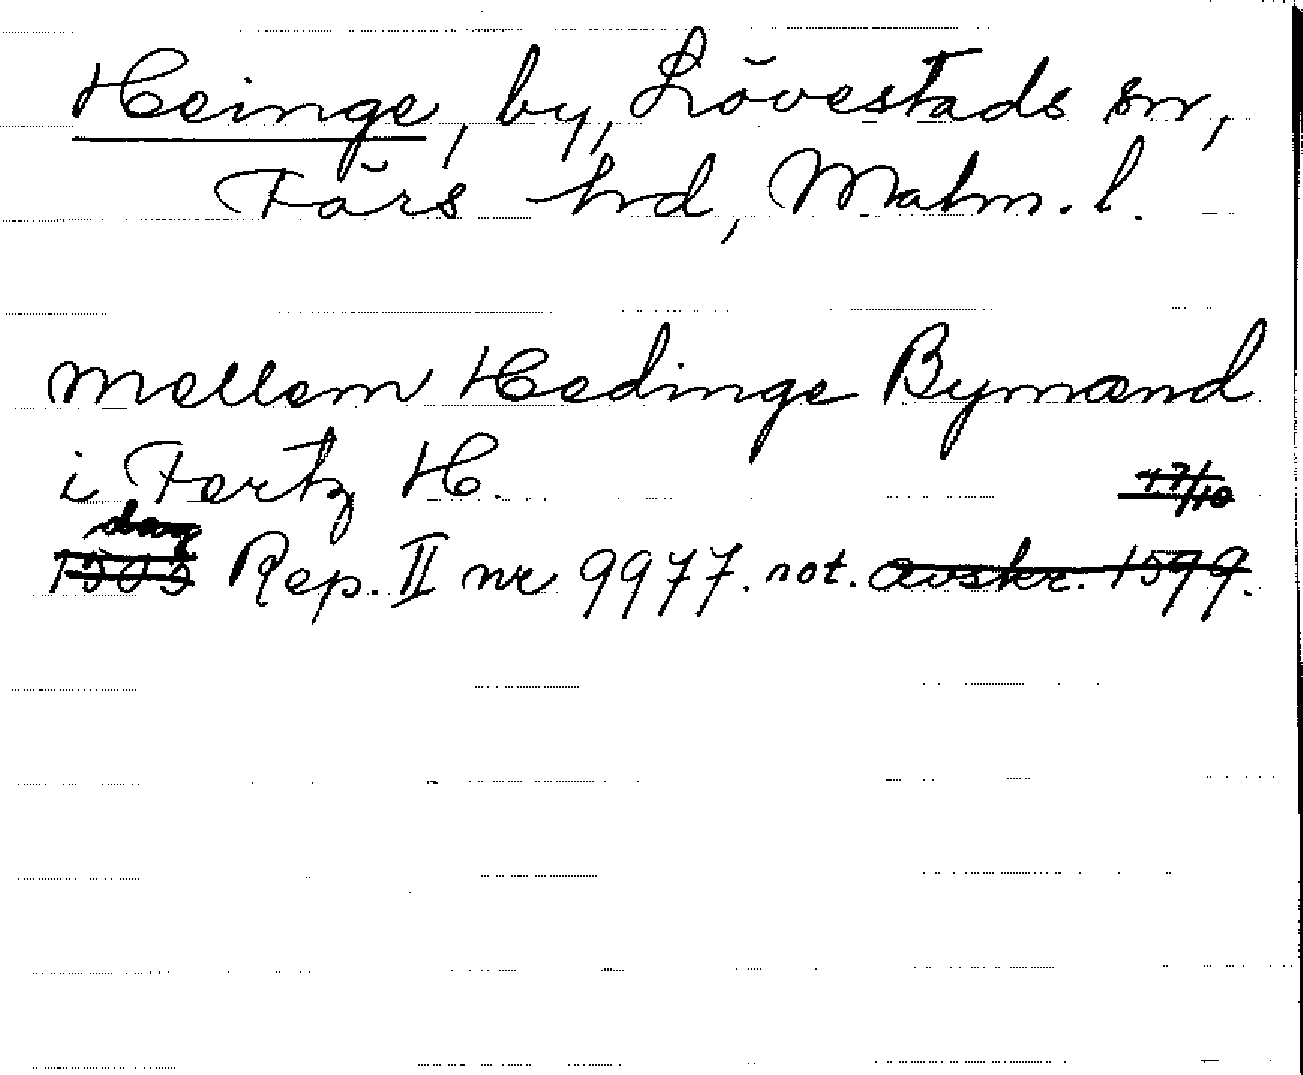 Heinge, by, Lövestads sn,
Färs hd, Malm. l.
mellem Hedinge Bymænd
i Fertz H.
17/10
1505 Rep. II nr 9977. not. avskr. 1599.